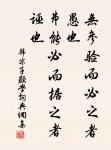 無參驗而必之者
愚也
弗能必而據之者
誣也
韓非子顯學詞典網集